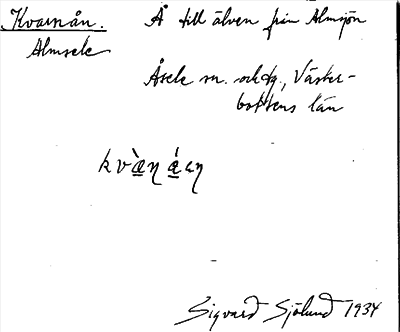 Kvarnån. Å till älven från Almsjön
Almsele
Åsele sn. och tg., Väster-
bottens län
Sigvard Sjölund 1934